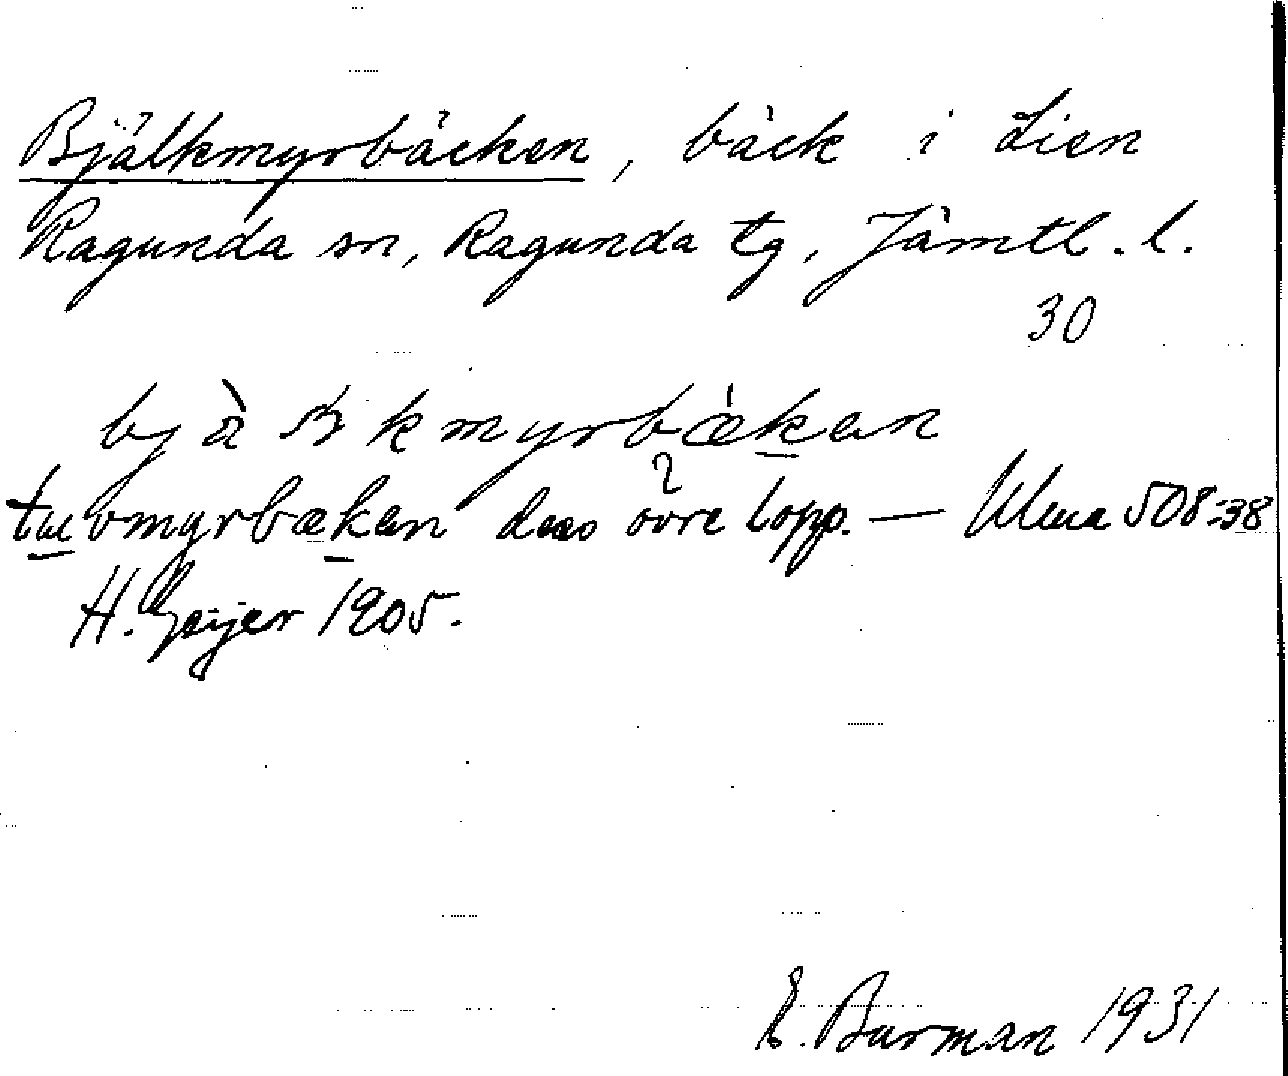 Bjälkmyrbäcken, bäck i Lien
Ragunda sn, Ragunda tg, Jämtl. l.
30
kmyrbækan
vmyrbækan dess övre lopp. — Ulma 508:38
H. Geijer 1905.
E. Burman 1931